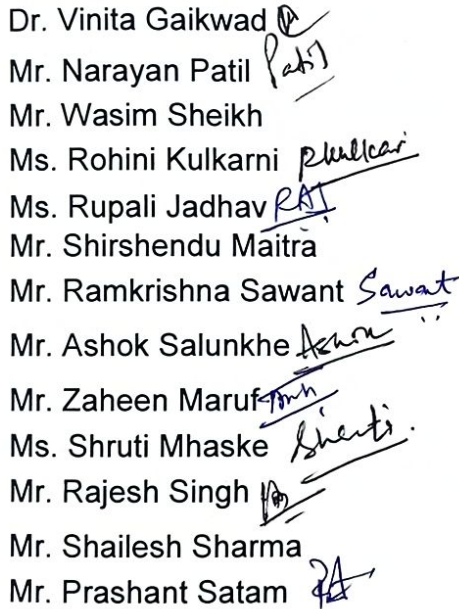 Dr. Vinita Gaikwad
Mr. Narayan Patil Patil
Mr. Wasim Sheikh
Ms. Rohini Kulkarni Rkulkarni
Ms. Rupali Jadhav RAJ
Mr. Shirshendu Maitra
Mr. Ramkrishna Sawant Sawant
Mr. Ashok Salunkhe Ashok
Mr. Zaheen Maruf
Ms. Shruti Mhaske Shruti.
Mr. Rajesh Singh
Mr. Shailesh Sharma
Mr. Prashant Satam